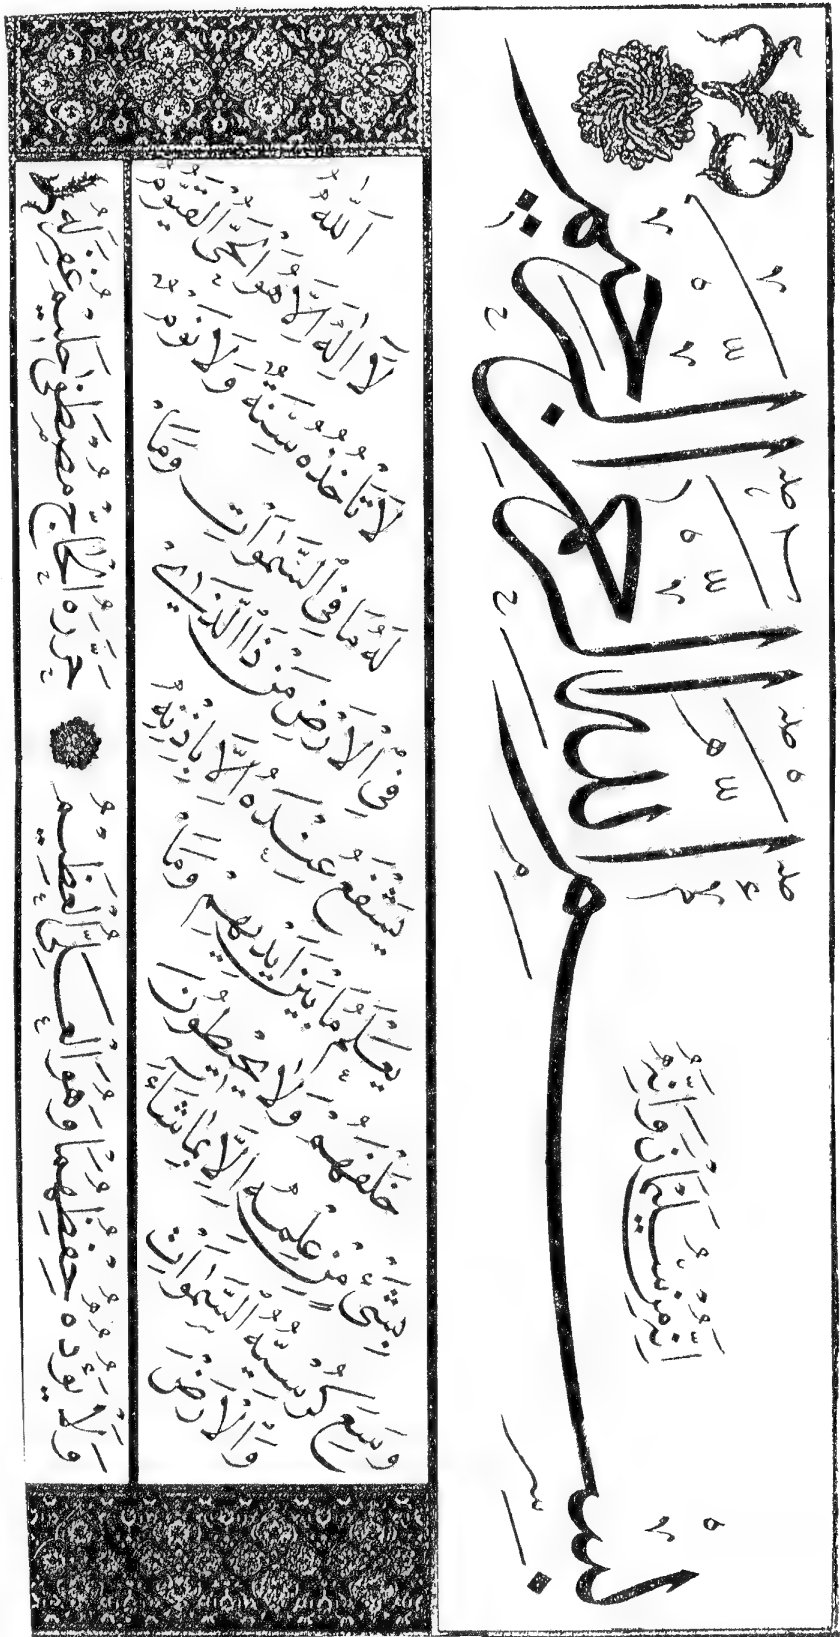 اِنَّهُ مِنْ سُلَيْمَانَ وَاِنَّهُ
بسم الله الرحمن الرحيم
اَللّٰهُ
لَا اِلٰهَ اِلَّا هُوَ الْحَىُّ الْقَيُّومُ
لَا تَأْخُذُهُ سِنَةٌ وَلَا نَوْمٌ
لَهُ مَا فِى السَّمٰوَاتِ وَمَا
فِى الْاَرْضِ مَنْ ذَا الَّذِى
يَشْفَعُ عِنْدَهُ اِلَّا بِاِذْنِهِ
يَعْلَمُ مَا بَيْنَ اَيْدِيهِمْ وَمَا
خَلْفَهُمْ وَلَا يُحِيطُونَ
بِشَىْءٍ مِنْ عِلْمِهِ اِلَّا بِمَا شَاءَ
وَسِعَ كُرْسِيُّهُ السَّمٰوَاتِ
وَالْاَرْضَ
وَلَا يَؤُدُهُ حِفْظُهُمَا وَهُوَ الْعَلِىُّ الْعَظِيمُ
حَرَّرَهُ الْحَاجُّ مُصْطَفٰى حَلِيم غُفِرَ لَهُ